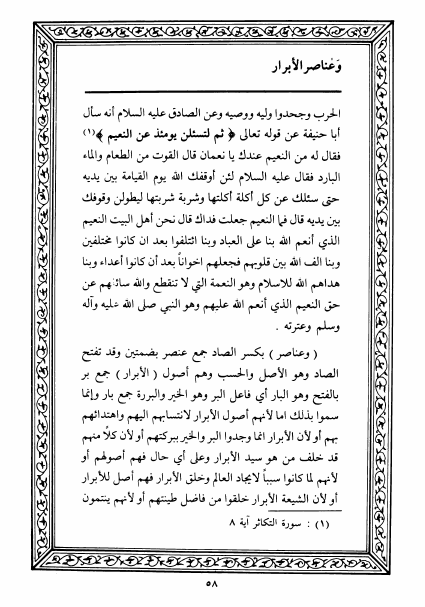 وَعَناصر الأبرار
الحرب وجحدوا وليه ووصيه وعن الصادق عليه السلام أنه سأل
أبا حنيفة عن قوله تعالى ﴿ ثم لتسئلن يومئذ عن النعيم ﴾(١)
فقال له من النعيم عندك يا نعمان قال القوت من الطعام والماء
البارد فقال عليه السلام لئن أوقفك الله يوم القيامة بين يديه
حتى سئلك عن كل أكلة أكلتها وشربة شربتها ليطولن وقوفك
بين يديه قال فما النعيم جعلت فداك قال نحن أهل البيت النعيم
الذي أنعم الله بنا على العباد وبنا ائتلفوا بعد ان كانوا مختلفين
وبنا الف الله بين قلوبهم فجعلهم اخواناً بعد أن كانوا أعداء وبنا
هداهم الله للاسلام وهو النعمة التي لا تنقطع والله سائلهم عن
حق النعيم الذي أنعم الله عليهم وهو النبي صلى الله عليه وآله
وسلم وعترته .
( وعناصر ) بكسر الصاد جمع عنصر بضمتين وقد تفتح
الصاد وهو الأصل والحسب وهم أصول ( الأبرار ) جمع بر
بالفتح وهو البار أي فاعل البر وهو الخير والبررة جمع بار وإنما
سموا بذلك اما لأنهم أصول الأبرار لانتسابهم اليهم واهتدائهم
بهم أو لأن الأبرار انما وجدوا البر والخير ببركتهم أو لأن كلاً منهم
قد خلف من هو سيد الأبرار وعلى أي حال فهم أصولهم أو
لأنهم لما كانوا سبباً لايجاد العالم وخلق الأبرار فهم أصل للأبرار
أو لأن الشيعة الأبرار خلقوا من فاضل طينتهم أو لأنهم ينتمون
(١) : سورة التكاثر آية ٨
٥٨